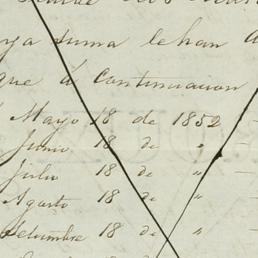 ya suma lehan
que á continuacion
Mayo 18 de 1852 —
Junio 18 de "
Julio 18 de "
Agosto 18 de "
Setiembre 18 de "